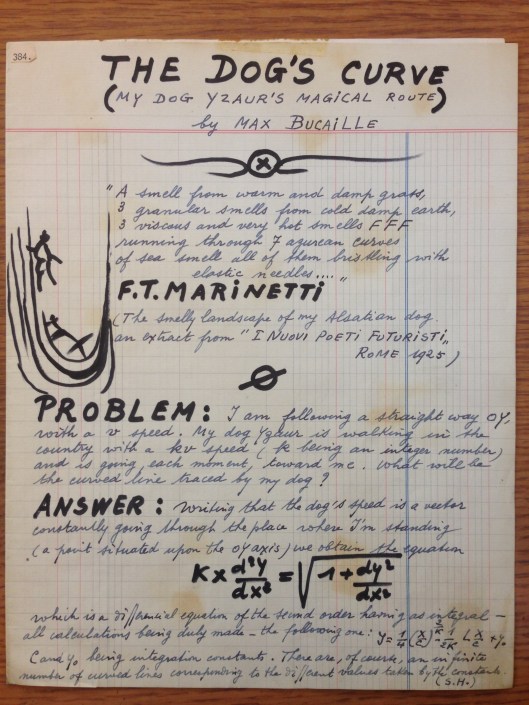 384.
THE DOG'S CURVE
(MY DOG YZAUR'S MAGICAL ROUTE)
by MAX BUCAILLE
X
"A smell from warm and damp grass,
3 granular smells from cold damp earth,
3 viscous and very hot smells FFF
running through 7 azurean curves
of sea smell all of them bristling with
elastic needles...."
F.T. MARINETTI
(The smelly landscape of my Alsatian dog.
an extract from "I NUOVI POETI FUTURISTI„
ROME 1925)
PROBLEM: I am following a straight way OY,
with a v speed. My dog Yzaur is walking in the
country with a kv speed (k being an integer number)
and is going, each moment, toward me. What will be
the curved line traced by my dog?
ANSWER: Writing that the dog's speed is a vector
constantly going through the place where I'm standing
(a point situated upon the OY axis) we obtain the equation
K x d²y/dx² = √1 + dy²/dx²
which is a differential equation of the second order having as integral –
all calculations being duly made – the following one: y =
C and y₀ being integration constants. There are, of course, an infinite
number of curved lines corresponding to the different values taken by the constants.
(S.H.)